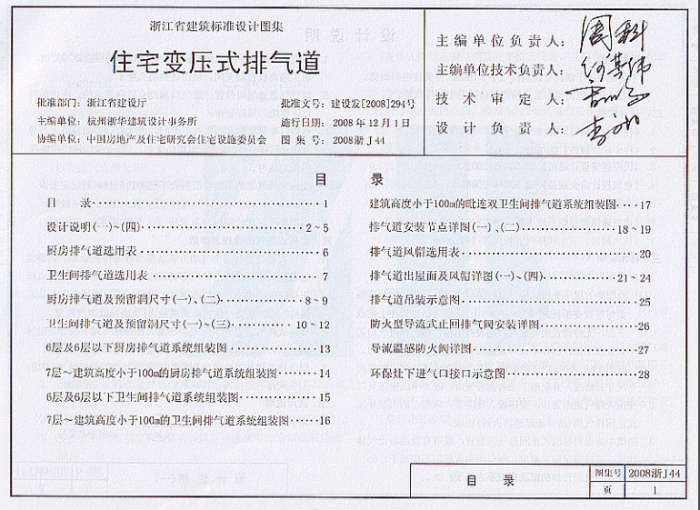 浙江省建筑标准设计图集
住宅变压式排气道
批准部门：浙江省建设厅
主编单位：杭州浙华建筑设计事务所
协编单位：中国房地产及住宅研究会住宅设施委员会
批准文号：建设发[2008]294号
施行日期：2008年12月1日
图集号：2008浙J44
主编单位负责人：
主编单位技术负责人：
技术审定人：
设计负责人：
目 录
目 录 1
设计说明(一)~(四) 2~5
厨房排气道选用表 6
卫生间排气道选用表 7
厨房排气道及预留洞尺寸(一)、(二) 8~9
卫生间排气道及预留洞尺寸(一)~(三) 10~12
6层及6层以下厨房排气道系统组装图 13
7层~建筑高度小于100m的厨房排气道系统组装图 14
6层及6层以下卫生间排气道系统组装图 15
7层~建筑高度小于100m的卫生间排气道系统组装图 16
建筑高度小于100m的毗连双卫生间排气道系统组装图 17
排气道安装节点详图(一)、(二) 18~19
排气道风帽选用表 20
排气道出屋面及风帽详图(一)~(四) 21~24
排气道吊装示意图 25
防火型导流式止回排气阀安装详图 26
导流温感防火阀详图 27
环保灶下进气口接口示意图 28
目 录
图集号 2008浙J44
页 1